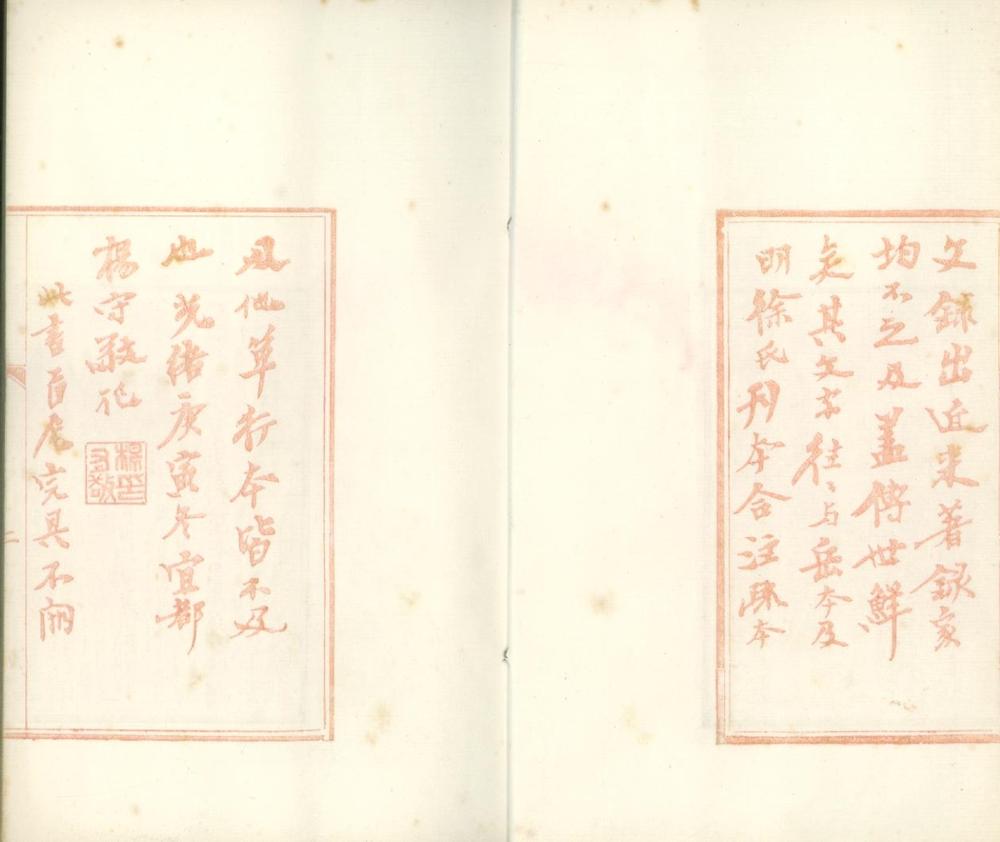 文録出近來著録家
均不之及蓋傳世鮮
矣其文字往〻与岳本及
明徐氏刋本合注疏本
及他單行本皆不及
也光緒庚寅冬宜都
楊守敬記
楊守敬
此書首尾完具不
二